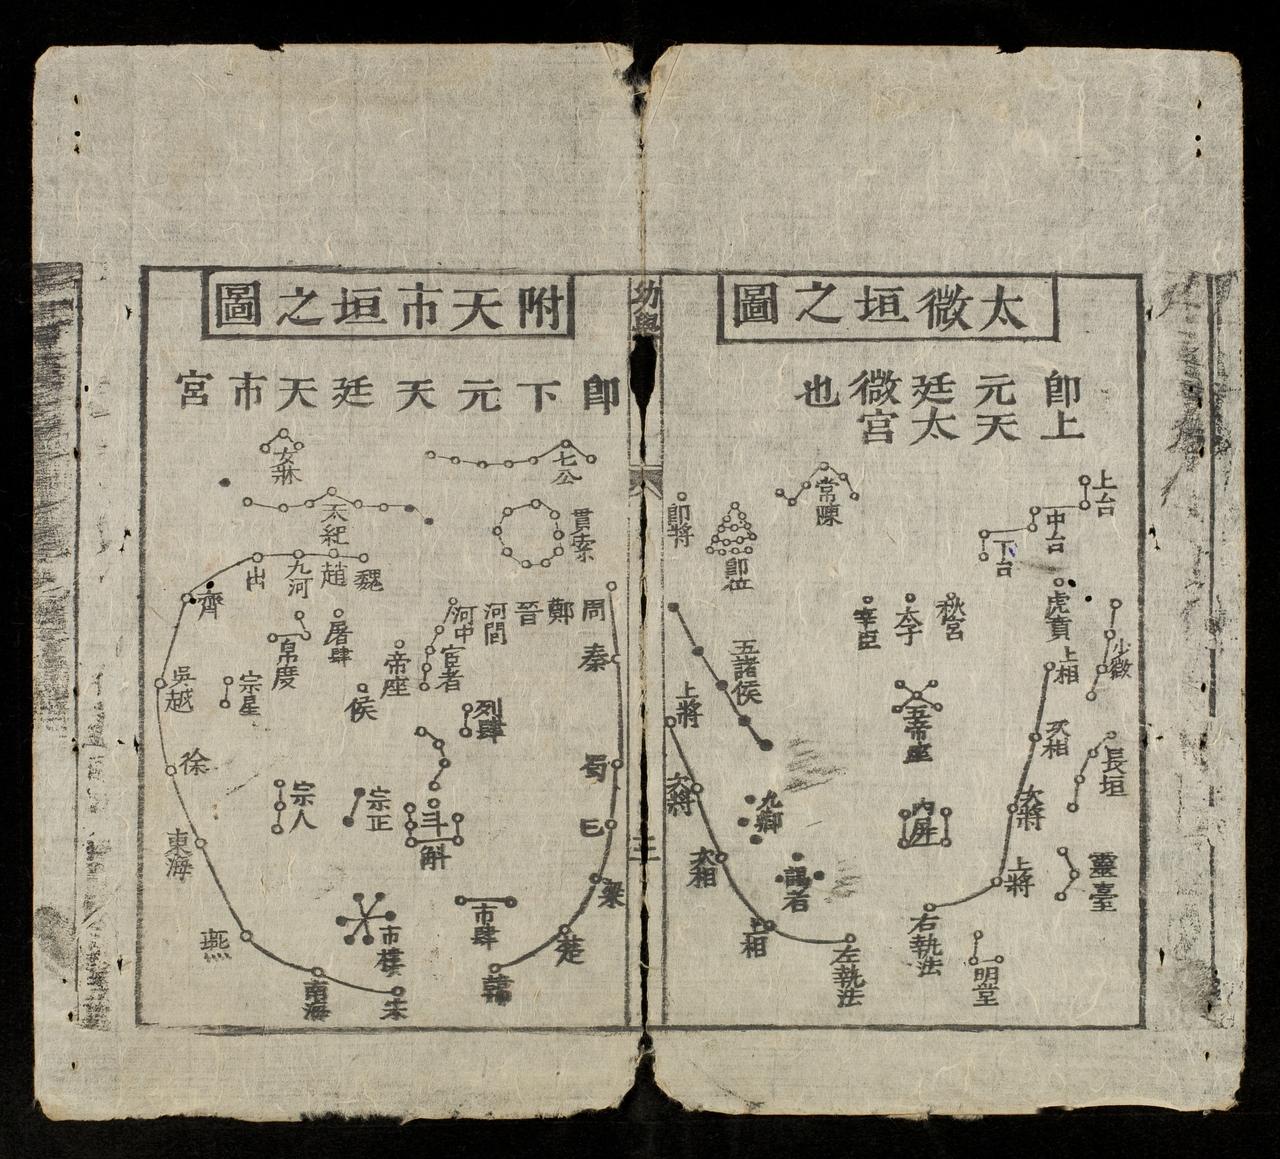 太微垣之圖
即上
元天
廷太
微宮
也
上台
中台
下台
常陳
即將
即位
虎賁
少微
秋宮
太子
幸臣
五諸侯
上相
次相
次將
上將
長垣
五帝座
內屏
九卿
謁者
靈臺
明堂
右執法
左執法
上將
次將
次相
上相
幼學
三
附天市垣之圖
即下元天廷天市宮
七公
女牀
貫索
天紀
魏
趙
九河
齊
吳越
徐
東海
燕
南海
宋
周
鄭
晉
河間
河中
秦
蜀
巴
梁
楚
韓
宦者
帝座
侯
屠肆
帛度
宗星
列肆
宗正
宗人
斗
斛
市肆
市樓